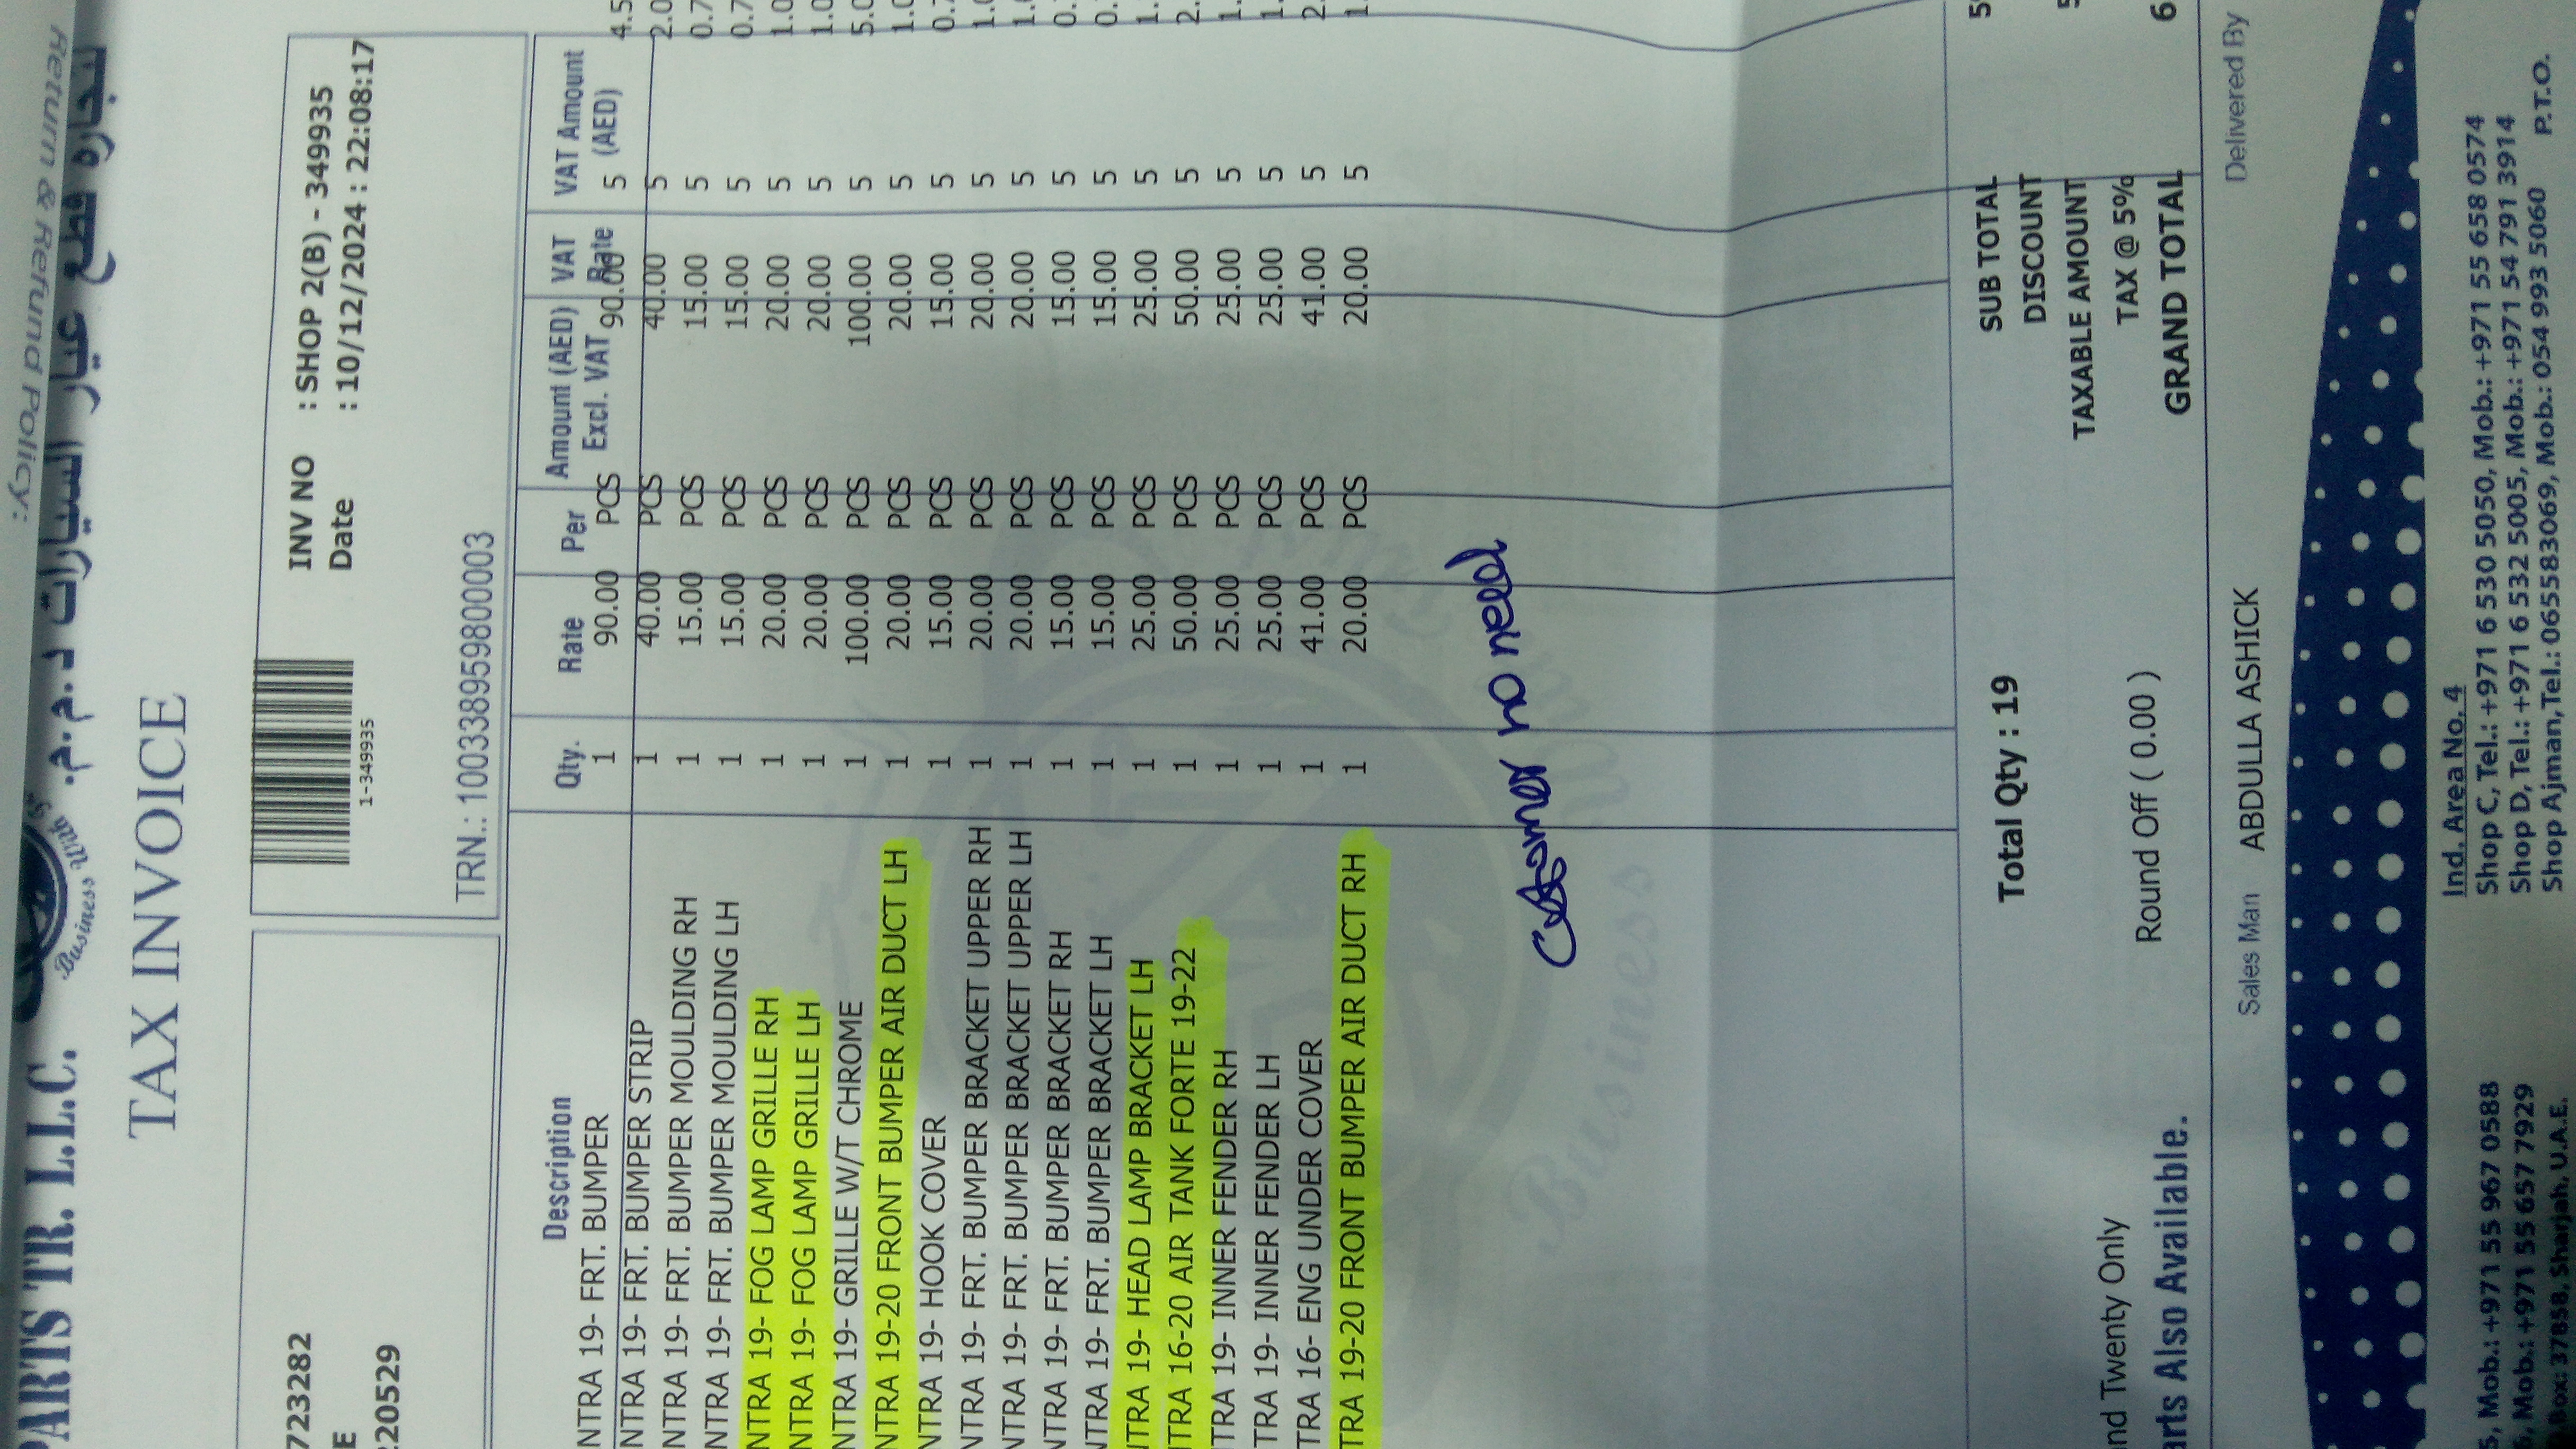 Return & Refund Policy:
PARTS TR. L.L.C.
لتجارة قطع غيار السيارات ذ.م.م.
Business With
TAX INVOICE
1-349935
INV NO : SHOP 2(B) - 349935
Date : 10/12/2024 : 22:08:17
723282
E
220529
TRN.: 100338959800003
Description Qty. Rate Per Amount (AED) Excl. VAT VAT Rate VAT Amount (AED)
NTRA 19- FRT. BUMPER 1 90.00 PCS 90.00 5 4.5
NTRA 19- FRT. BUMPER STRIP 1 40.00 PCS 40.00 5 2.0
NTRA 19- FRT. BUMPER MOULDING RH 1 15.00 PCS 15.00 5 0.7
NTRA 19- FRT. BUMPER MOULDING LH 1 15.00 PCS 15.00 5 0.7
NTRA 19- FOG LAMP GRILLE RH 1 20.00 PCS 20.00 5 1.0
NTRA 19- FOG LAMP GRILLE LH 1 20.00 PCS 20.00 5 1.0
NTRA 19- GRILLE W/T CHROME 1 100.00 PCS 100.00 5 5.0
NTRA 19-20 FRONT BUMPER AIR DUCT LH 1 20.00 PCS 20.00 5 1.0
NTRA 19- HOOK COVER 1 15.00 PCS 15.00 5 0.7
NTRA 19- FRT. BUMPER BRACKET UPPER RH 1 20.00 PCS 20.00 5 1.0
NTRA 19- FRT. BUMPER BRACKET UPPER LH 1 20.00 PCS 20.00 5 1.0
NTRA 19- FRT. BUMPER BRACKET RH 1 15.00 PCS 15.00 5 0.
NTRA 19- FRT. BUMPER BRACKET LH 1 15.00 PCS 15.00 5 0.
NTRA 19- HEAD LAMP BRACKET LH 1 25.00 PCS 25.00 5 1.
NTRA 16-20 AIR TANK FORTE 19-22 1 50.00 PCS 50.00 5 2.
TRA 19- INNER FENDER RH 1 25.00 PCS 25.00 5 1.
TRA 19- INNER FENDER LH 1 25.00 PCS 25.00 5 1.
TRA 16- ENG UNDER COVER 1 41.00 PCS 41.00 5 2.
TRA 19-20 FRONT BUMPER AIR DUCT RH 1 20.00 PCS 20.00 5 1.
no need
Business
Total Qty : 19
SUB TOTAL 5
DISCOUNT
TAXABLE AMOUNT 5
TAX @ 5%
GRAND TOTAL 6
nd Twenty Only
Round Off ( 0.00 )
arts Also Available.
Sales Man ABDULLA ASHICK
Delivered By
Ind. Area No. 4
Mob.: +971 55 967 0588 Shop C, Tel.: +971 6 530 5050, Mob.: +971 55 658 0574
Mob.: +971 55 657 7929 Shop D, Tel.: +971 6 532 5005, Mob.: +971 54 791 3914
Box: 37858, Sharjah, U.A.E. Shop Ajman, Tel.: 065583069, Mob.: 054 993 5060 P.T.O.